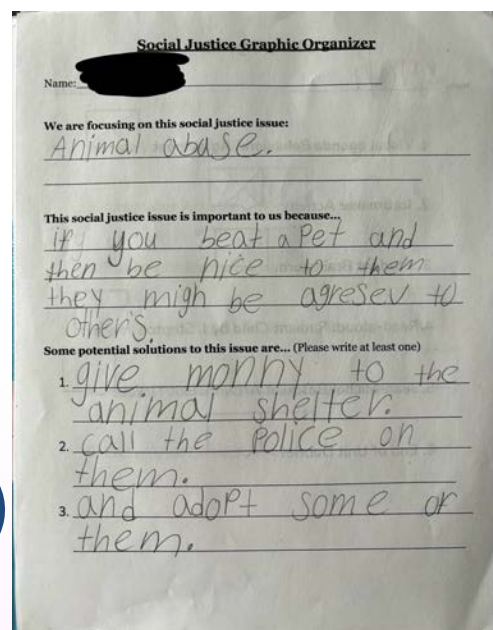 Social Justice Graphic Organizer
Name:
We are focusing on this social justice issue:
Animal abuse.
This social justice issue is important to us because...
if you beat a Pet and
then be nice to them
they migh be agresev to
other's.
Some potential solutions to this issue are... (Please write at least one)
1. give monny to the
animal shelter.
2. call the Police on
them.
3. and adopt some or
them.